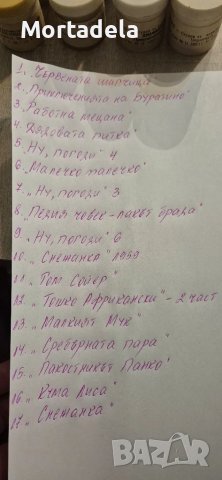 Mortadela
1. „Червената шапчица"
2. „Приключенията на Буратино"
3. „Работна мецана"
4. „Дядовата питка"
5. „Ну, погоди" 4
6. „Малечко палечко"
7. „Ну, погоди" 3
8. „Педя човек - лакът брада"
9. „Ну, погоди" 6
10. „Снежанка" 1959
11. „Том Сойер"
12. „Тошко Африкански" - 2 част
13. „Малкият Мук"
14. „Сребърната пара"
15. „Пакостникът Панко"
16. „Кума Лиса"
17. „Снежанка"
bazar.bg